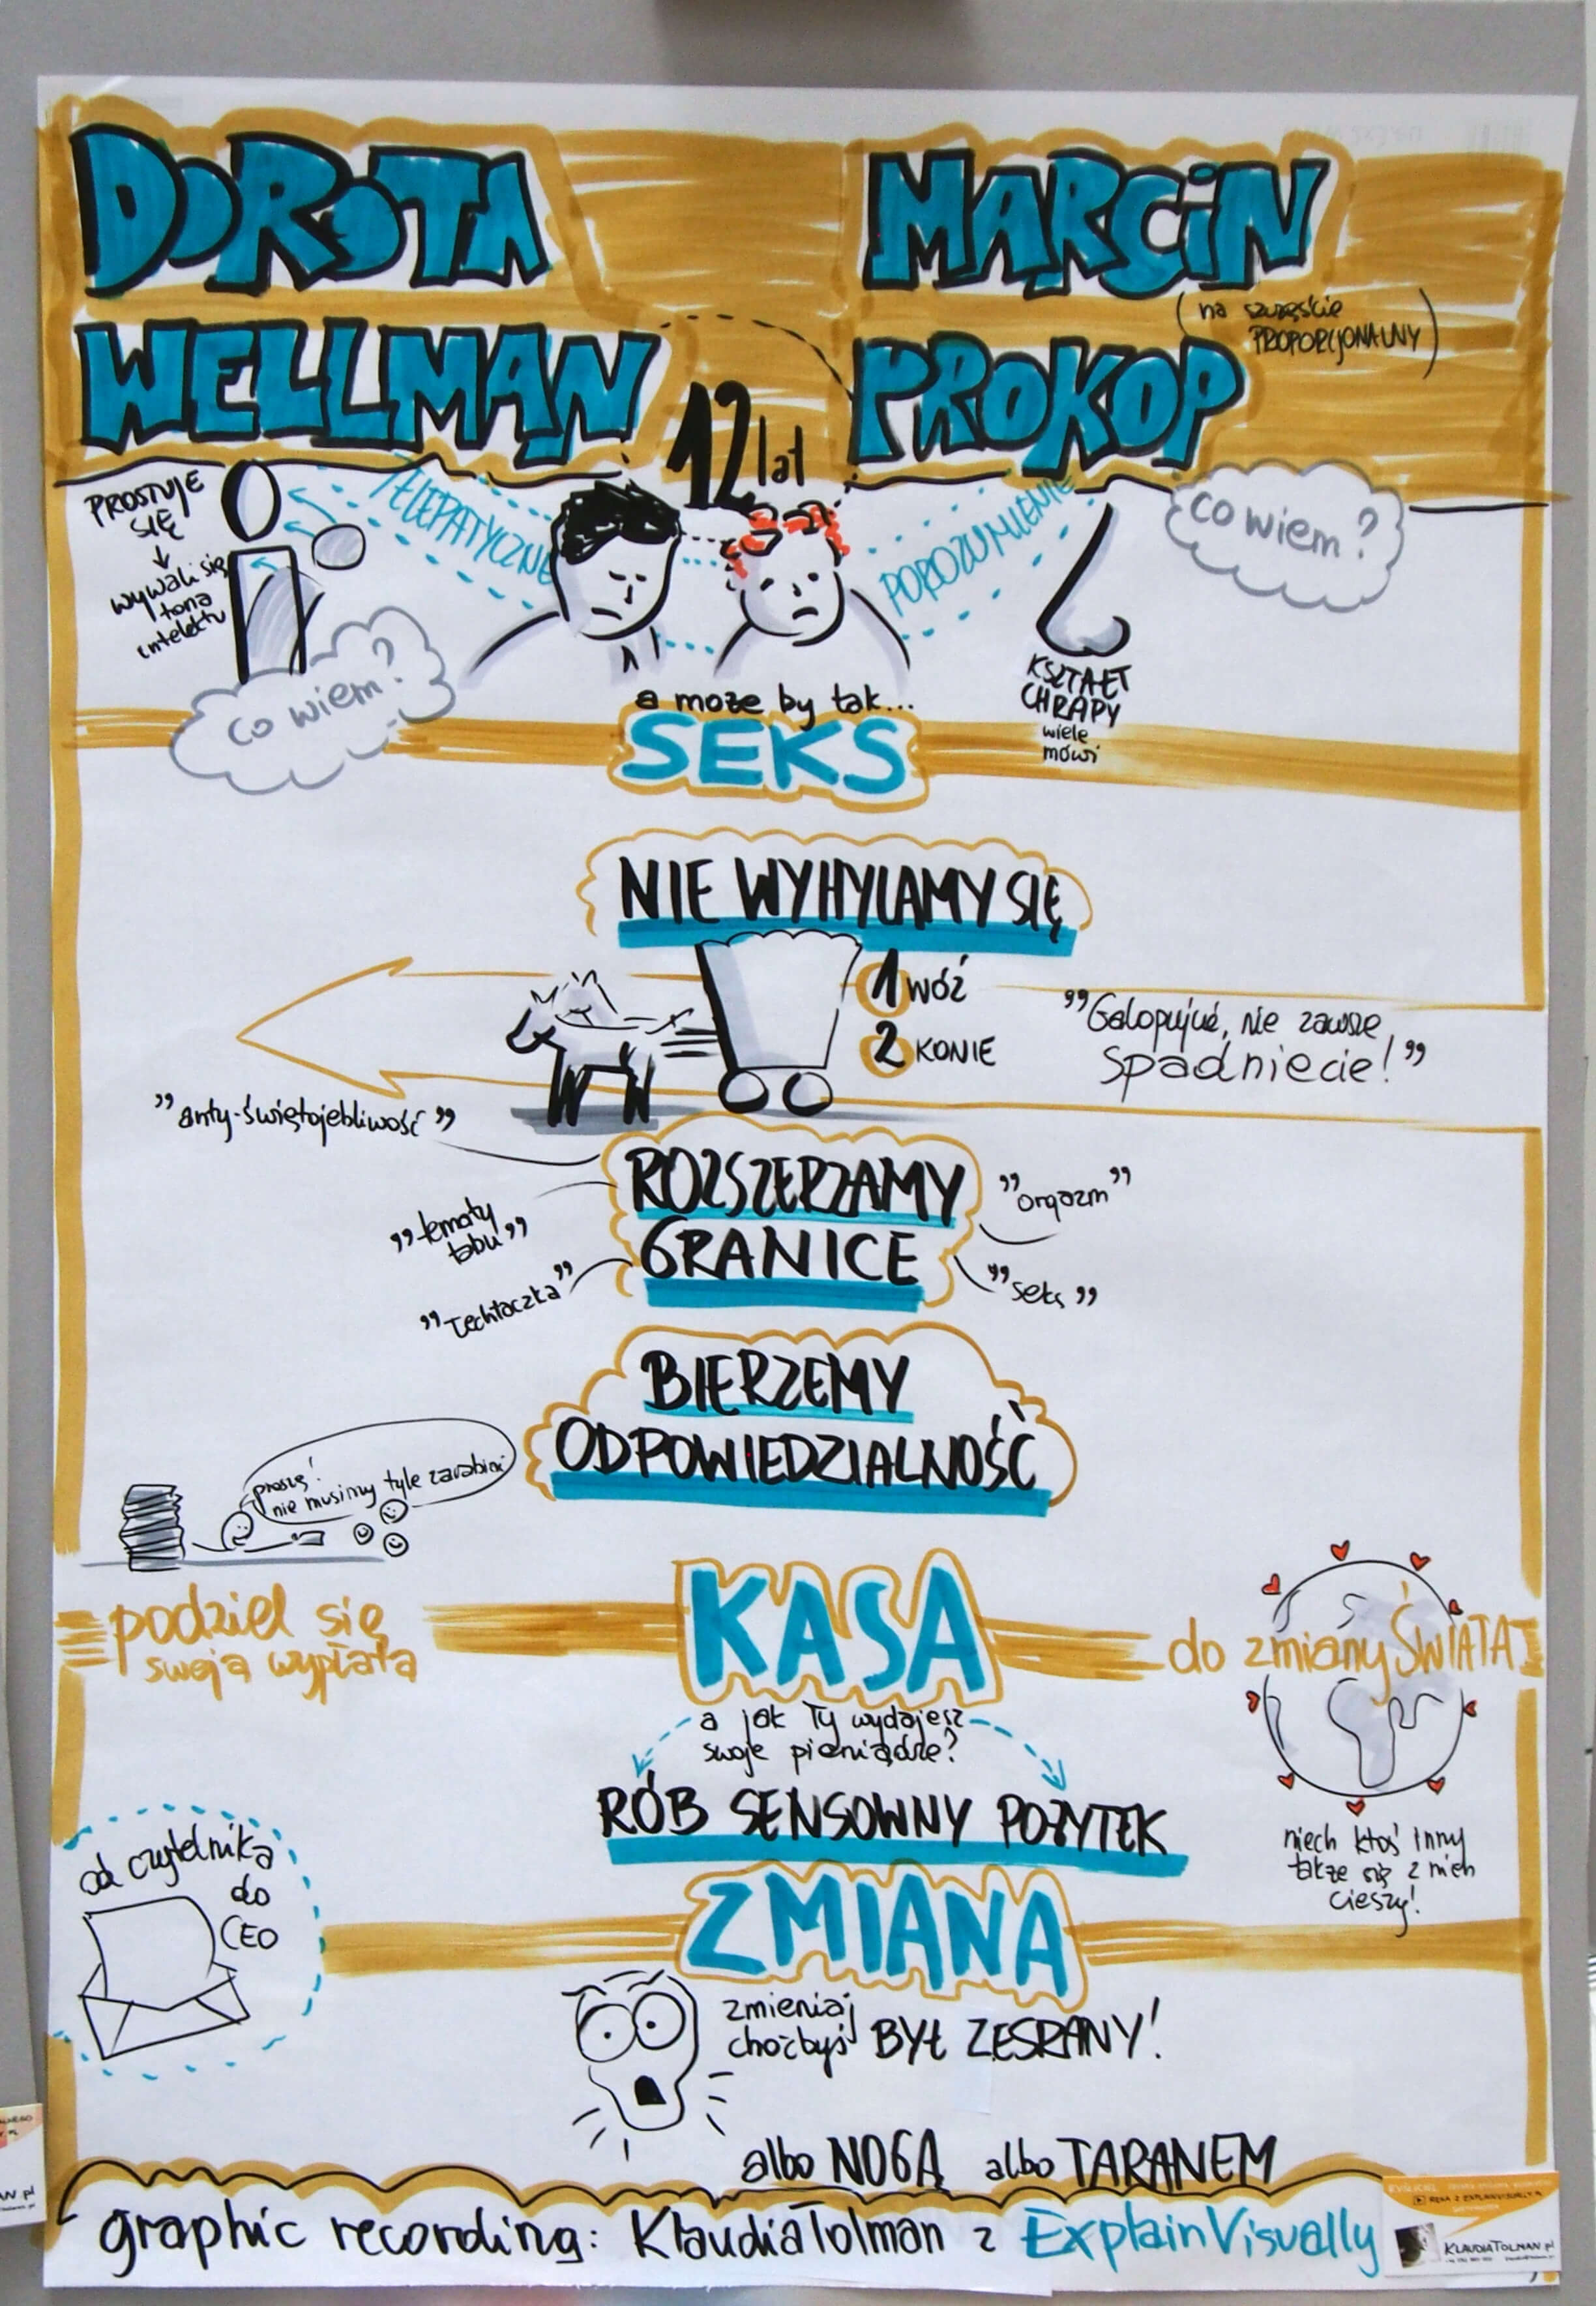 DOROTA
WELLMAN
MARCIN
PROKOP
(na szczęście
PROPORCJONALNY)
12 lat
PROSTUJE
SIĘ
wywali się
tona
intelektu
TELEPATYCZNE
POROZUMIENIE
co wiem?
co wiem?
KSZTAŁT
CHRAPY
wiele
mówi
a może by tak...
SEKS
NIE WYHYLAMY SIĘ
1 WÓZ
2 KONIE
"Galopujcie, nie zawsze
spadniecie!"
"anty-świętojebliwość"
ROZSZERZAMY
GRANICE
"tematy
tabu"
"Łechtaczka"
"orgazm"
"seks"
BIERZEMY
ODPOWIEDZIALNOŚĆ
proszę!
nie musimy tyle zarabiać
podziel się
swoją wypłatą
KASA
do zmiany ŚWIATA
a jak Ty wydajesz
swoje pieniądze?
RÓB SENSOWNY POŻYTEK
niech ktoś inny
także się z nich
cieszy!
od czytelnika
do
CEO
ZMIANA
zmieniaj
choćbyś BYŁ ZESRANY!
albo NOGĄ albo TARANEM
graphic recording: Klaudia Tolman z ExplainVisually
KLAUDIATOLMAN.pl